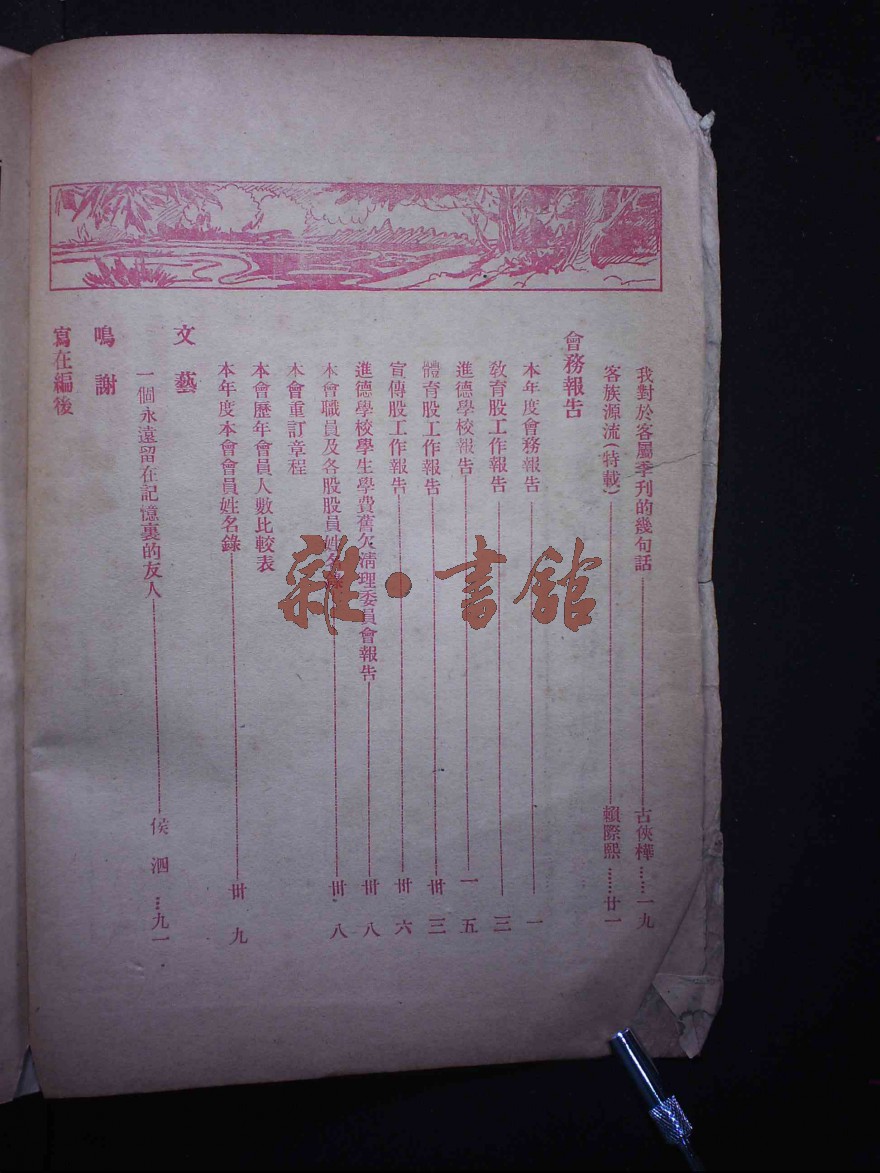 我對於客屬季刊的幾句話 古俠樺……一九
客族源流(特載) 賴際熙……廿一
會務報告
本年度會務報告 一
教育股工作報告 三
進德學校報告 一五
體育股工作報告 卅三
宣傳股工作報告 卅六
進德學校學生學費舊欠清理委員會報告 卅八
本會職員及各股股員姓名錄 卅八
本會重訂章程
本會歷年會員人數比較表
本年度本會會員姓名錄 卅九
文藝
一個永遠留在記憶裏的友人 侯泗…九一
鳴謝
寫在編後
雜·書館